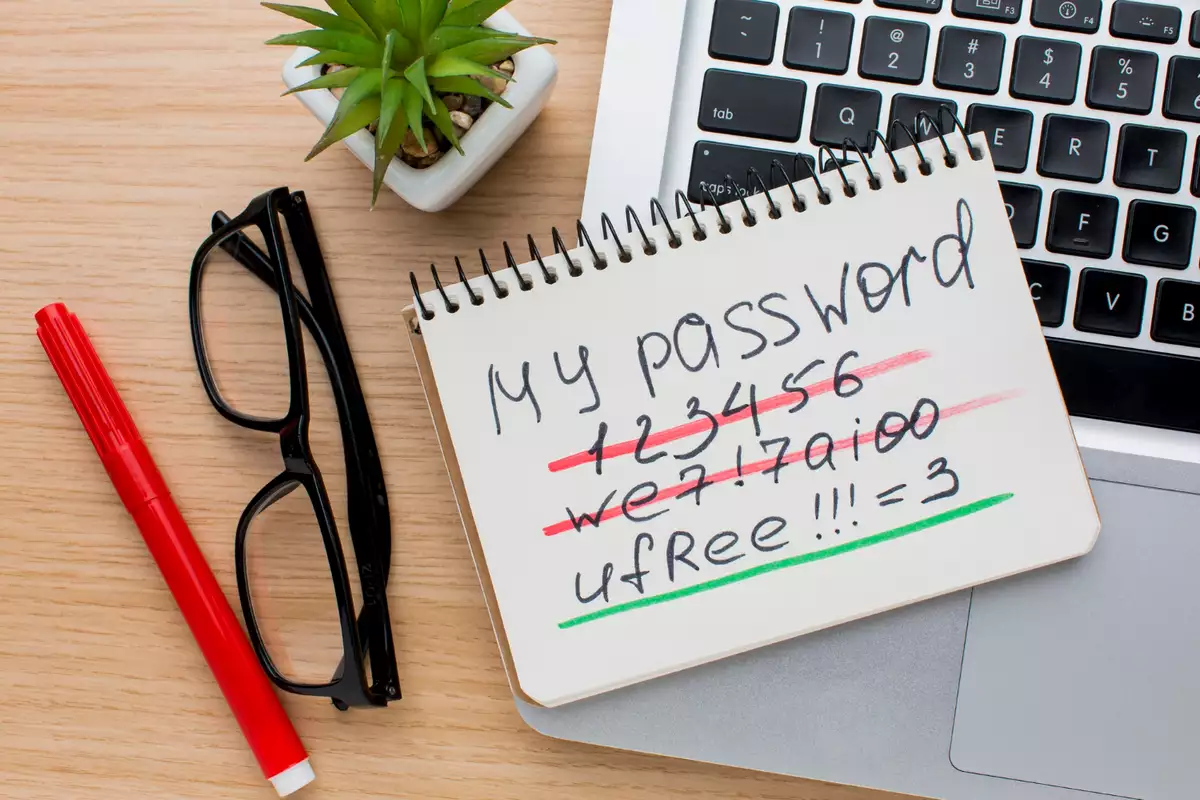 ~ ! @ # $ %
` 1 2 3 4 5
F3 F4 F5
tab Q W E R T
caps lock D F G
C V B
My password
123456
we7!7aioo
ufRee!!!=3